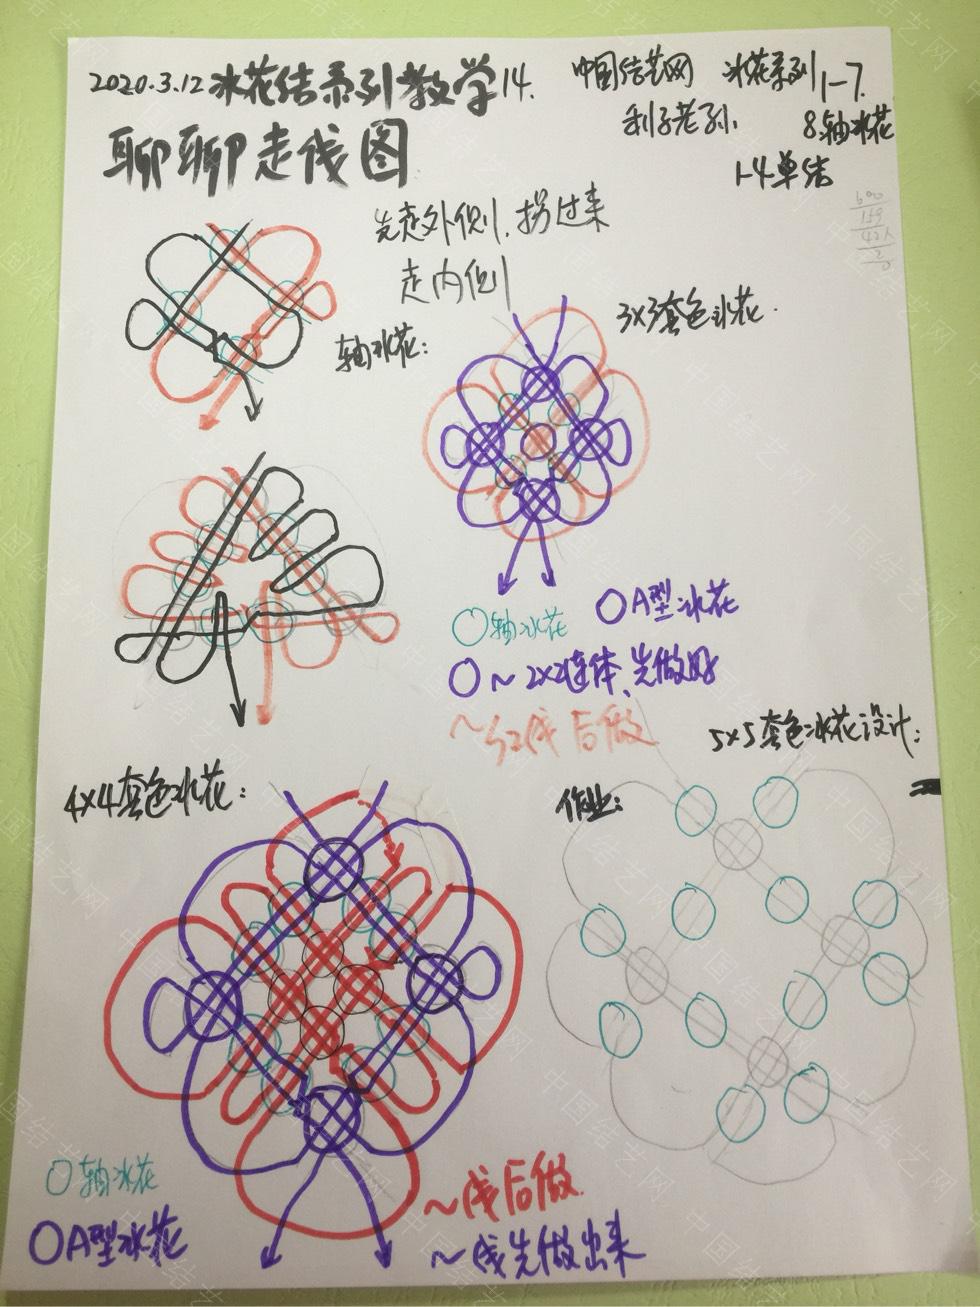 2020.3.12 冰花结系列教学14.
中国结艺网 冰花系列1-7.
利子老孙
8.轴冰花
聊聊走线图
1-4单结
先走外侧,拐过来
走内侧
3×3套色冰花.
轴冰花:
○轴冰花
○A型冰花
○~2×2连体、先做好
~红线后做
5×5套色冰花设计:
4×4套色冰花:
作业:
○轴冰花
~线后做.
○A型冰花
~线先做出来
中国结艺网